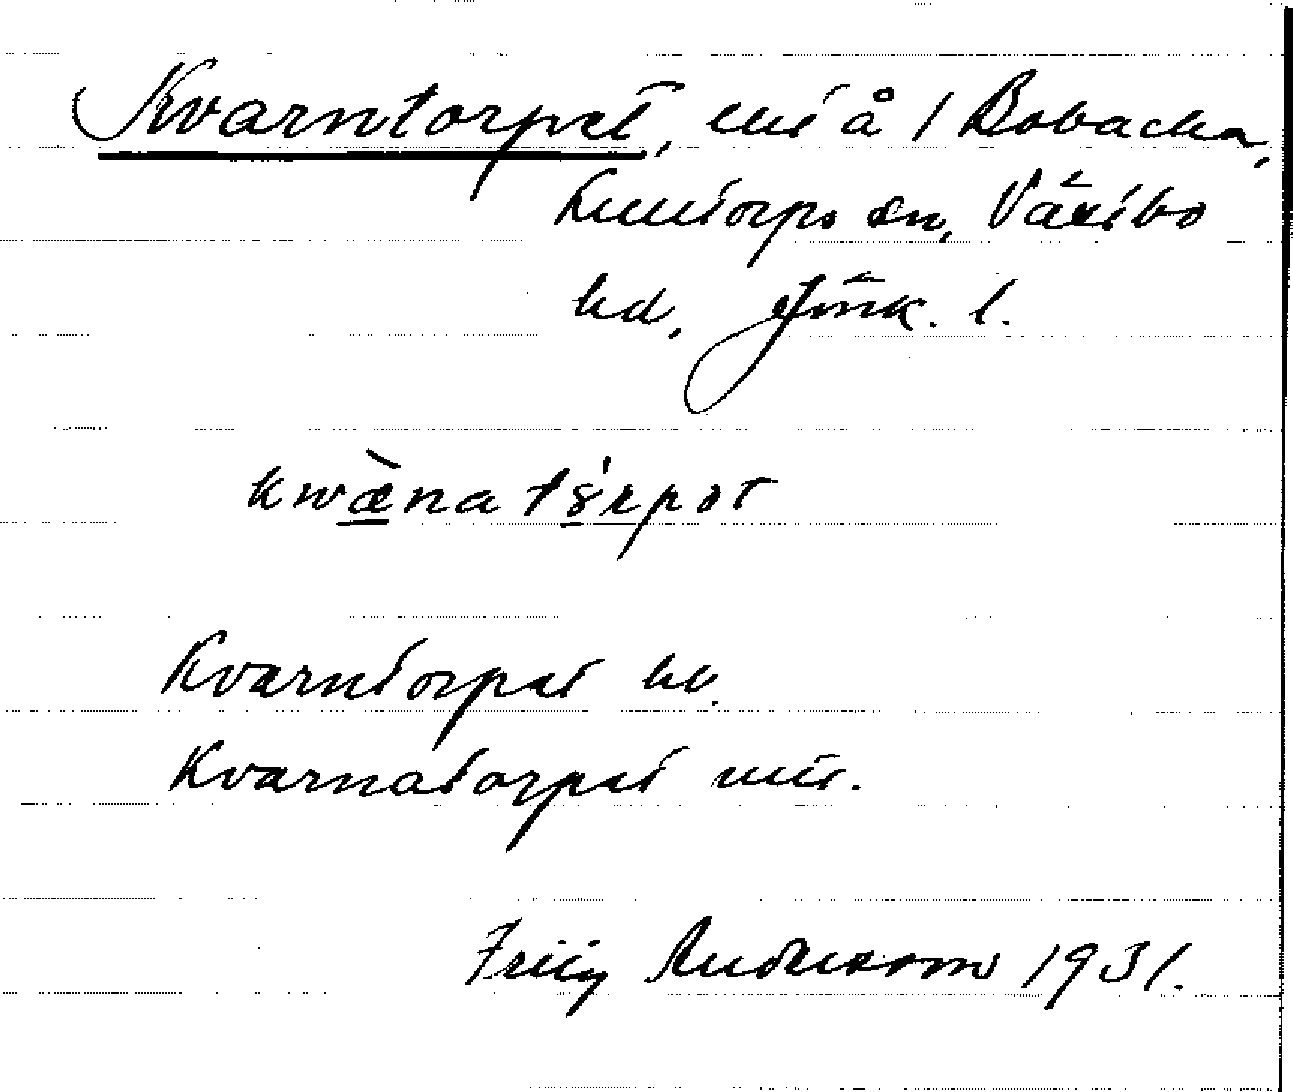 Kvarntorpet, utj å / Bobacka,
Linntorps sn, Västbo
hd, Jönk. l.
kwæ̀na tɤ́rpət
Kvarntorpet hd.
Kvarnatorpet utt.
Frejg Andersson 1931.